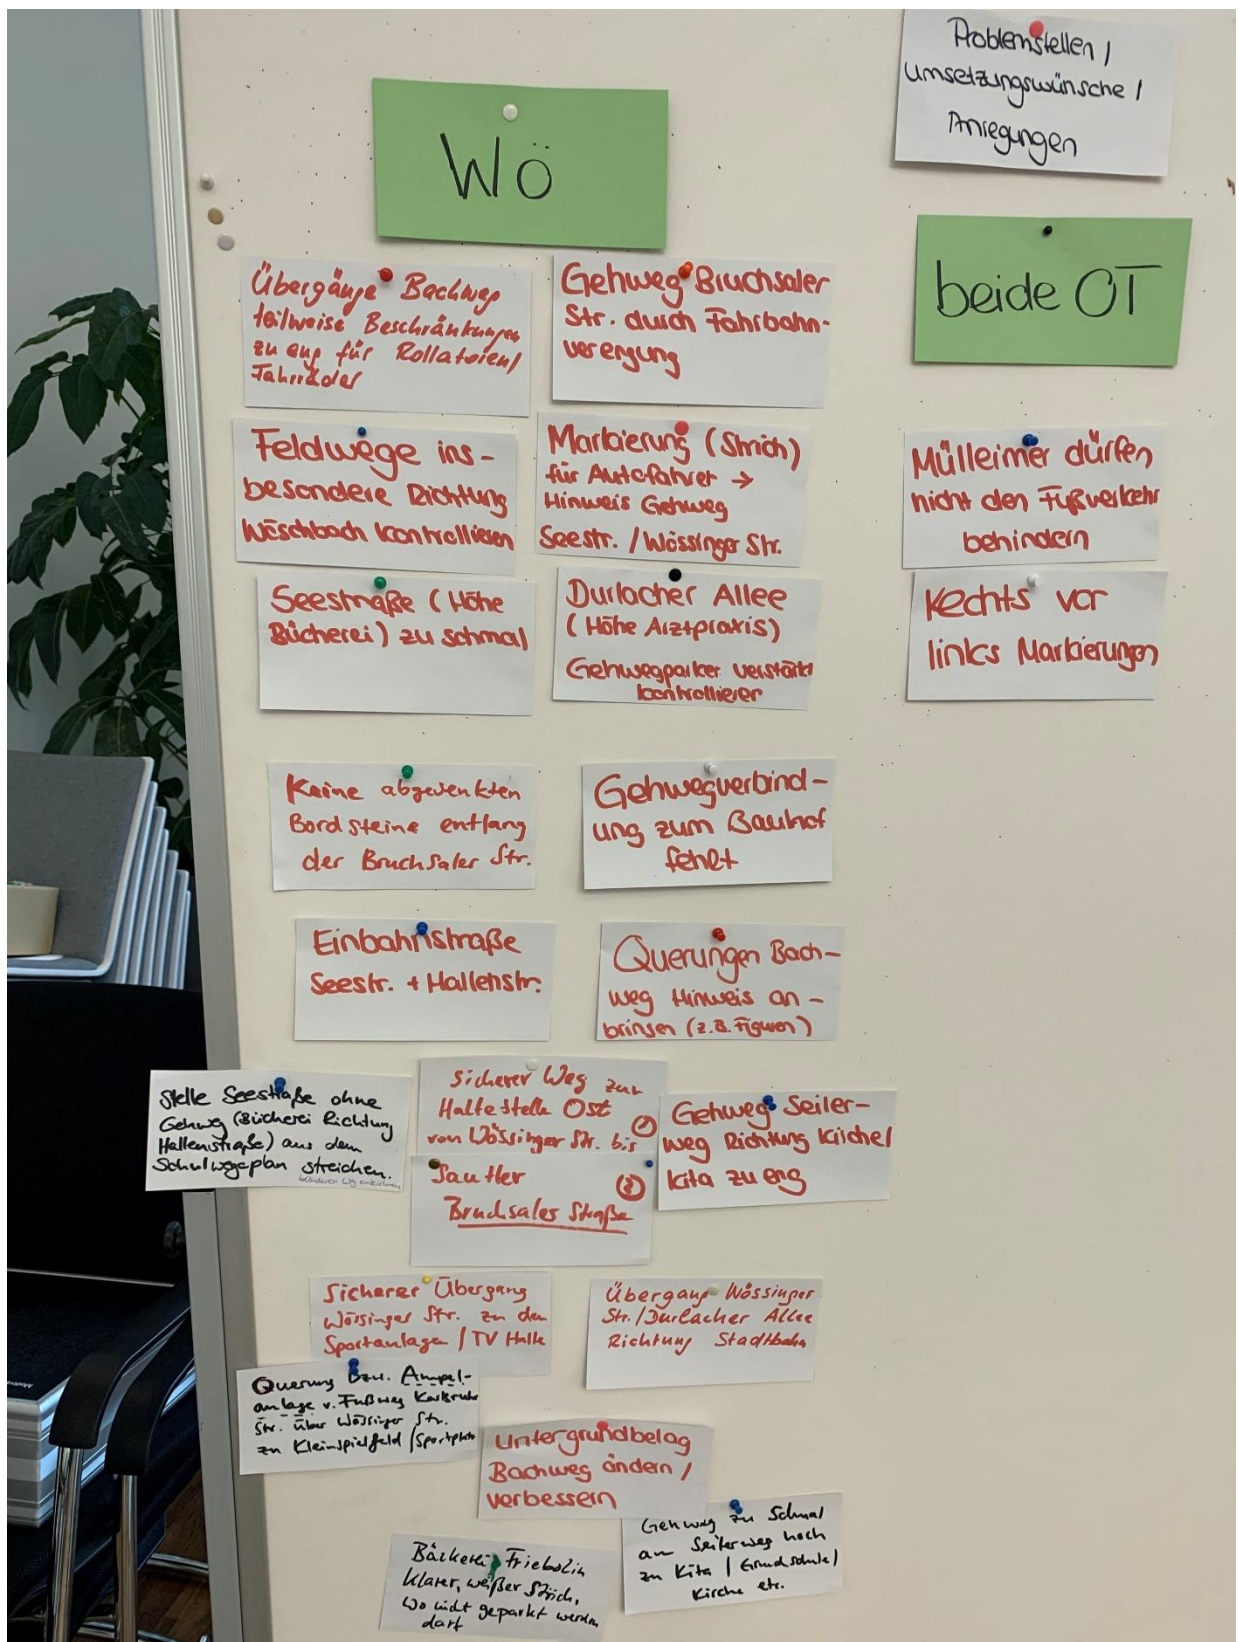 Problemstellen /
Umsetzungswünsche /
Anregungen
Wö
Übergänge Bachweg
teilweise Beschränkungen
zu eng für Rollatoren/
Fahrräder
Gehweg Bruchsaler
Str. durch Fahrbahn-
verengung
Feldwege ins-
besondere Richtung
Wöschbach kontrollieren
Markierung (Strich)
für Autofahrer →
Hinweis Gehweg
Seestr. / Wössinger Str.
Seestraße (Höhe
Bücherei) zu schmal
Durlacher Allee
(Höhe Arztpraxis)
Gehwegparker verstärkt
kontrollieren
Keine abgesenkten
Bordsteine entlang
der Bruchsaler Str.
Gehwegverbind-
ung zum Bauhof
fehlt
Einbahnstraße
Seestr. + Hallenstr.
Querungen Bach-
weg Hinweis an-
bringen (z.B. Figuren)
Stelle Seestraße ohne
Gehweg (Bücherei Richtung
Hallenstraße) aus dem
Schulwegeplan streichen.
Sicherer Weg zur
Haltestelle Ost
von Wössinger Str. bis
Sautter ②
Bruchsaler Straße
Gehweg Seiler-
weg Richtung Kirche/
Kita zu eng
Sicherer Übergang
Wössinger Str. zu den
Sportanlagen / TV Halle
Übergang Wössinger
Str./Durlacher Allee
Richtung Stadtbahn
Querung bzw. Ampel-
anlage v. Fußweg Karlsruher
Str. über Wössinger Str.
zu Kleinspielfeld / Sportplatz
Untergrundbelag
Bachweg ändern /
verbessern
Gehweg zu schmal
am Seilerweg hoch
zu Kita / Grundschule /
Kirche etc.
Bäckerei Friebolin
klarer, weißer Strich,
wo nicht geparkt werden
darf
beide OT
Mülleimer dürfen
nicht den Fußverkehr
behindern
Rechts vor
links Markierungen